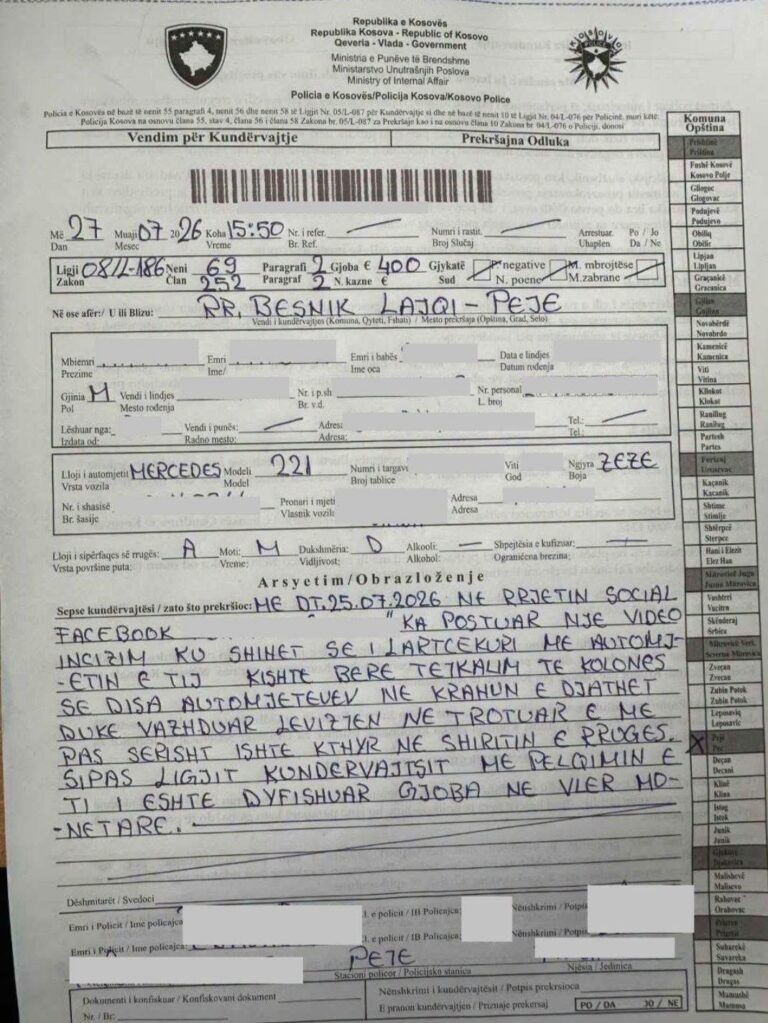 Republika e Kosovës
Republika Kosova - Republic of Kosovo
Qeveria - Vlada - Government
Ministria e Punëve të Brendshme
Ministarstvo Unutrašnjih Poslova
Ministry of Internal Affair
Policia e Kosovës/Policija Kosova/Kosovo Police
KOSOVO
POLICE
Policia e Kosovës në bazë të nenit 55 paragrafi 4, nenit 56 dhe nenit 58 të Ligjit Nr. 05/L-087 për Kundërvajtje si dhe në bazë të nenit 10 të Ligjit Nr. 04/L-076 për Policinë, muri këtë:
Policija Kosova na osnovu člana 55, stav 4, člana 56 i člana 58 Zakona br. 05/L-087 za Prekršaje kao i na osnovu člana 10 Zakona br. 04/L-076 o Policiji, donosi
Vendim për Kundërvajtje
Prekršajna Odluka
Më 27 Muaji 07 2026 Koha 15:50 Nr. i refer. Numri i rastit. Arrestuar. Po / Jo
Dan Mesec Vreme Br. Ref. Broj Slučaj Uhapšen Da / Ne
Ligji 08/L-186 Neni 69 Paragrafi 2 Gjoba € 400 Gjykatë P. negative M. mbrojtëse
Zakon Član 252 Paragraf 2 N. kazne € Sud N. poene M. zabrane
Në ose afër:/ U ili Blizu: RR. BESNIK LAJQI - PEJE
Vendi i kundërvajtjes (Komuna, Qyteti, Fshati) / Mesto prekršaja (Opština, Grad, Selo)
Mbiemri Emri Emri i babës Data e lindjes
Prezime Ime/ Ime oca Datum rođenja
Gjinia M Vendi i lindjes Nr. i p.sh Nr. personal
Pol Mesto rođenja Br. v.d. L. broj
Lëshuar nga: Vendi i punës: Adresa: Tel.:
Izdata od: Radno mesto: Adresa: Tel.:
Lloji i automjetit MERCEDES Modeli 221 Numri i targave Viti Ngjyra ZEZE
Vrsta vozila Model Broj tablice God Boja
Nr. i shasisë Pronari i mjetit Adresa
Br. šasije Vlasnik vozila Adresa
Lloji i sipërfaqes së rrugës: A Moti: M Dukshmëria: D Alkooli: Shpejtësia e kufizuar:
Vrsta površine puta: Vreme: Vidljivost: Alkohol: Ograničena brezina:
Arsyetim/Obrazloženje
Sepse kundërvajtësi / zato što prekršioc: ME DT.25.07.2026 NE RRJETIN SOCIAL
FACEBOOK " KA POSTUAR NJE VIDEO
INCIZIM KU SHIHET SE I LARTCEKURI ME AUTOMJ-
-ETIN E TIJ KISHTE BERE TEJKALIM TE KOLONES
SE DISA AUTOMJETEVEV NE KRAHUN E DJATHET
DUKE VAZHDUAR LEVIZJEN NE TROTUAR E ME
PAS SERISHT ISHTE KTHYR NE SHIRITIN E RRUGES.
SIPAS LIGJIT KUNDERVAJTSIT ME PELQIMIN E
TI I ESHTE DYFISHUAR GJOBA NE VLER MO-
-NETARE.
Dëshmitarët / Svedoci
Emri i Policit / Ime policajca I. e policit / IB Policajca: Nënshkrimi / Potpis
Emri i Policit / Ime policajca: I. e policit / IB Policajca: Nënshkrimi / Potpis
PEJE
Stacioni policor / Policijska stanica Njësia / Jedinica
Dokumenti i konfiskuar / Konfiskovani dokument
Nr. / Br:
Nënshkrimi i kundërvajtësit / Potpis prekrsioca
E pranon kundërvajtjen / Priznaje prekersaj PO / DA JO / NE
Komuna
Opština
Prishtinë
Priština
Fushë Kosovë
Kosovo Polje
Gllogoc
Glogovac
Podujevë
Podujevo
Obiliq
Obilic
Lipjan
Lipljan
Graçankë
Gracanica
Gjilan
Gnjilane
Novobërdë
Novobrdo
Kamenicë
Kamenica
Viti
Vitina
Kllokot
Klokot
Ranillug
Ranilug
Partesh
Partes
Ferizaj
Urosevac
Kaçanik
Kacanik
Shtime
Stimlje
Shtërpcë
Sterpce
Hani i Elezit
Elez Han
Mitrovicë Jugu
Juzna Mitrovica
Vushtrri
Vucitrn
Skënderaj
Srbica
Mitrovicë Veri.
Severna Mitrovica
Zveçan
Zvecan
Zubin Potok
Zubin Potok
Leposaviq
Leposavic
Pejë
Pec
Deçan
Decani
Klinë
Klina
Istog
Istok
Junik
Junik
Gjakovë
Djakovica
Malishevë
Malisevo
Rahovec
Orahovac
Prizren
Prizren
Suharekë
Suvareka
Dragash
Dragas
Mamushë
Mamusa